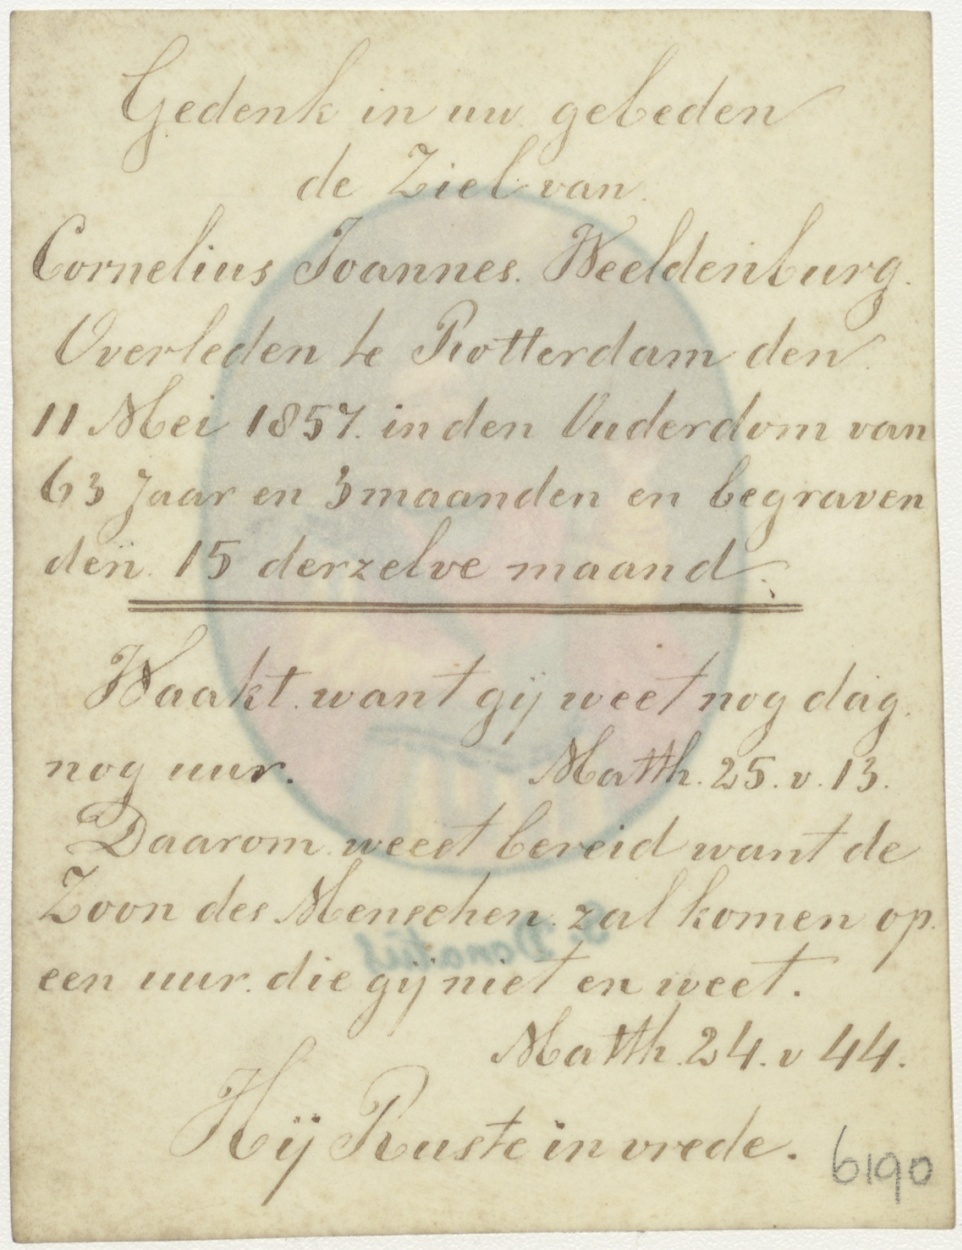 Gedenk in uw gebeden
de Ziel van
Cornelius Joannes. Weeldenburg.
Overleden te Rotterdam den
11 Mei 1857. in den Ouderdom van
63 Jaar en 3 maanden en begraven
den 15 derzelve maand.
Waakt want gij weet nog dag
nog uur. Matth. 25. v. 13.
Daarom weest bereid want de
Zoon des Menschen zal komen op
een uur die gij niet en weet.
S. Donatus
Matth. 24. v 44.
Hij Ruste in vrede.
6190